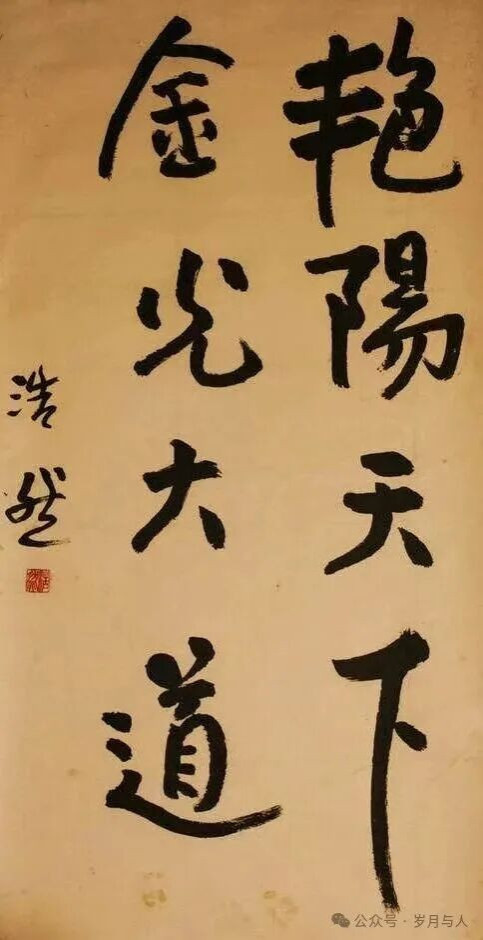 艳陽天下
金光大道
浩然
公众号 · 岁月与人